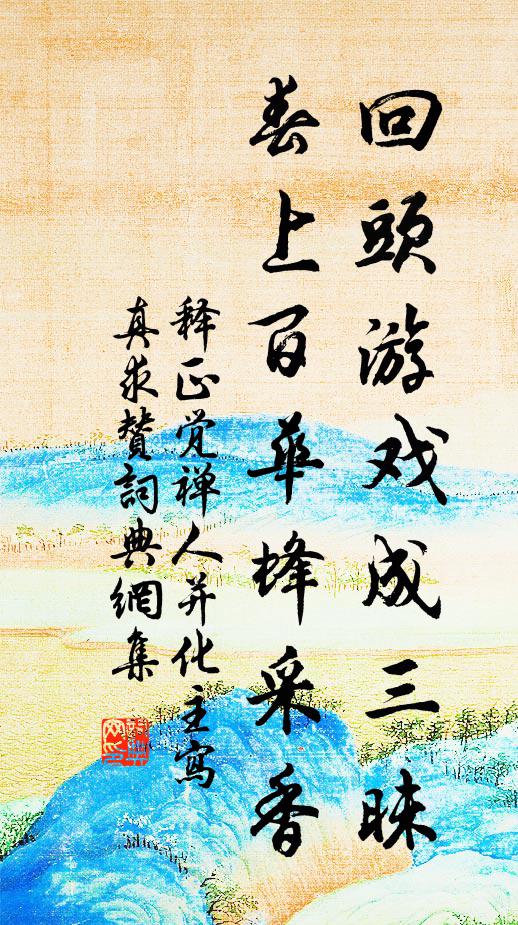 回頭游戏成三昧
春上百華蜂采香
释正觉禅人并化主寫
真求賛詞典網集